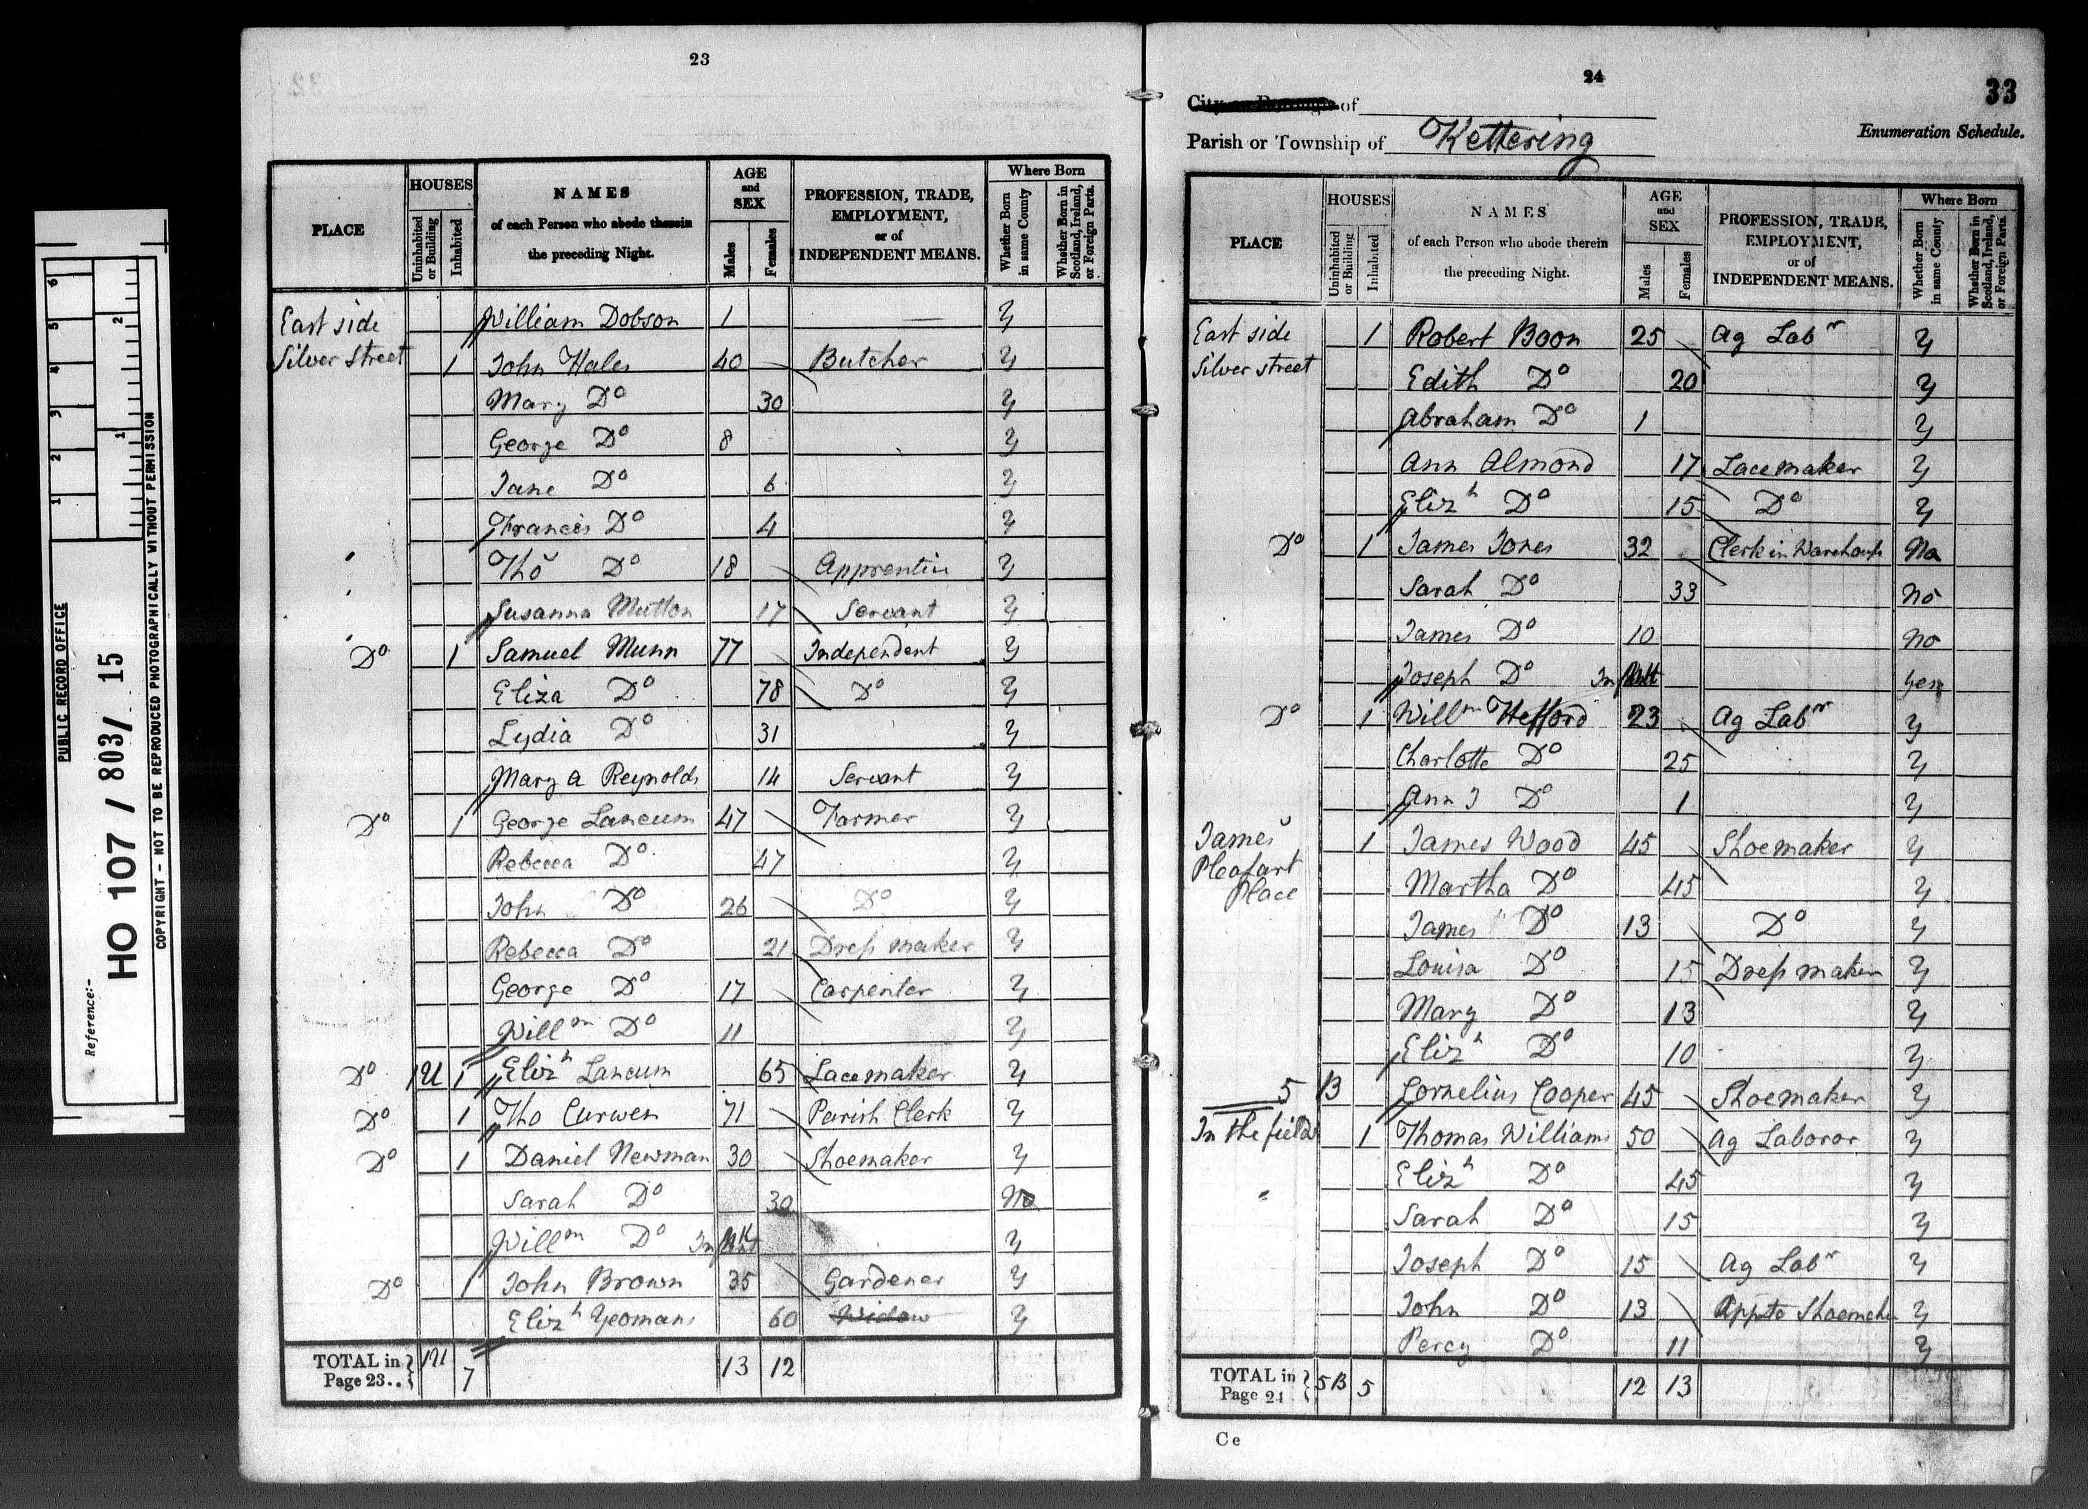 PUBLIC RECORD OFFICE
Reference:-
HO 107 / 803 / 15
COPYRIGHT - NOT TO BE REPRODUCED PHOTOGRAPHICALLY WITHOUT PERMISSION
1 2 3 4 5 6
1 2
23
PLACE HOUSES Uninhabited or Building Inhabited NAMES of each Person who abode therein the preceding Night. AGE and SEX Males Females PROFESSION, TRADE, EMPLOYMENT, or of INDEPENDENT MEANS. Where Born Whether Born in same County Whether Born in Scotland, Ireland, or Foreign Parts.
East side William Dobson 1 — y
Silver street 1 John Hales 40 Butcher y
Mary Do 30 y
George Do 8 y
Jane Do 6 y
Francis Do 4 y
Tho Do 18 Apprentice y
Susanna Mutton 17 Servant y
Do 1 Samuel Munn 77 Independent y
Eliza Do 78 Do y
Lydia Do 31 y
Mary A Reynolds 14 Servant y
Do 1 George Lancum 47 Farmer y
Rebecca Do 47 y
John Do 26 Do y
Rebecca Do 21 Dress maker y
George Do 17 Carpenter y
Willm Do 11 y
Do 1U 1 Elizh Lancum 65 Lacemaker y
Do 1 Tho Curwen 71 Parish Clerk y
Do 1 Daniel Newman 30 Shoemaker y
Sarah Do 30 No
Willm Do y
Do 1 John Brown 35 Gardener y
Elizh Yeomans 60 Widow y
TOTAL in Page 23.. } 1U 7 13 12
24
33
City or Borough of
Enumeration Schedule.
Parish or Township of Kettering
PLACE HOUSES Uninhabited or Building Inhabited NAMES of each Person who abode therein the preceding Night. AGE and SEX Males Females PROFESSION, TRADE, EMPLOYMENT, or of INDEPENDENT MEANS. Where Born Whether Born in same County Whether Born in Scotland, Ireland, or Foreign Parts.
East side 1 Robert Boon 25 Ag Labr y
Silver street Edith Do 20 y
Abraham Do 1 y
Ann Almond 17 Lacemaker y
Elizh Do 15 Do y
Do 1 James Jones 32 Clerk in Warehouse No
Sarah Do 33 No
James Do 10 No
Joseph Do yes
Do 1 Willm Hefford 23 Ag Labr y
Charlotte Do 25 y
Ann J Do 1 y
James 1 James Wood 45 Shoemaker y
Pleasant Martha Do 45 y
Place James Do 13 Do y
Louisa Do 15 Dress maker y
Mary Do 13 y
Elizh Do 10 y
5 B Cornelius Cooper 45 Shoemaker y
In the field 1 Thomas Williams 50 Ag Laboror y
Elizh Do 45 y
Sarah Do 15 y
Joseph Do 15 Ag Labr y
John Do 13 Appte Shoemaker y
Percy Do 11 y
TOTAL in Page 24 } 5B 5 12 13
Ce